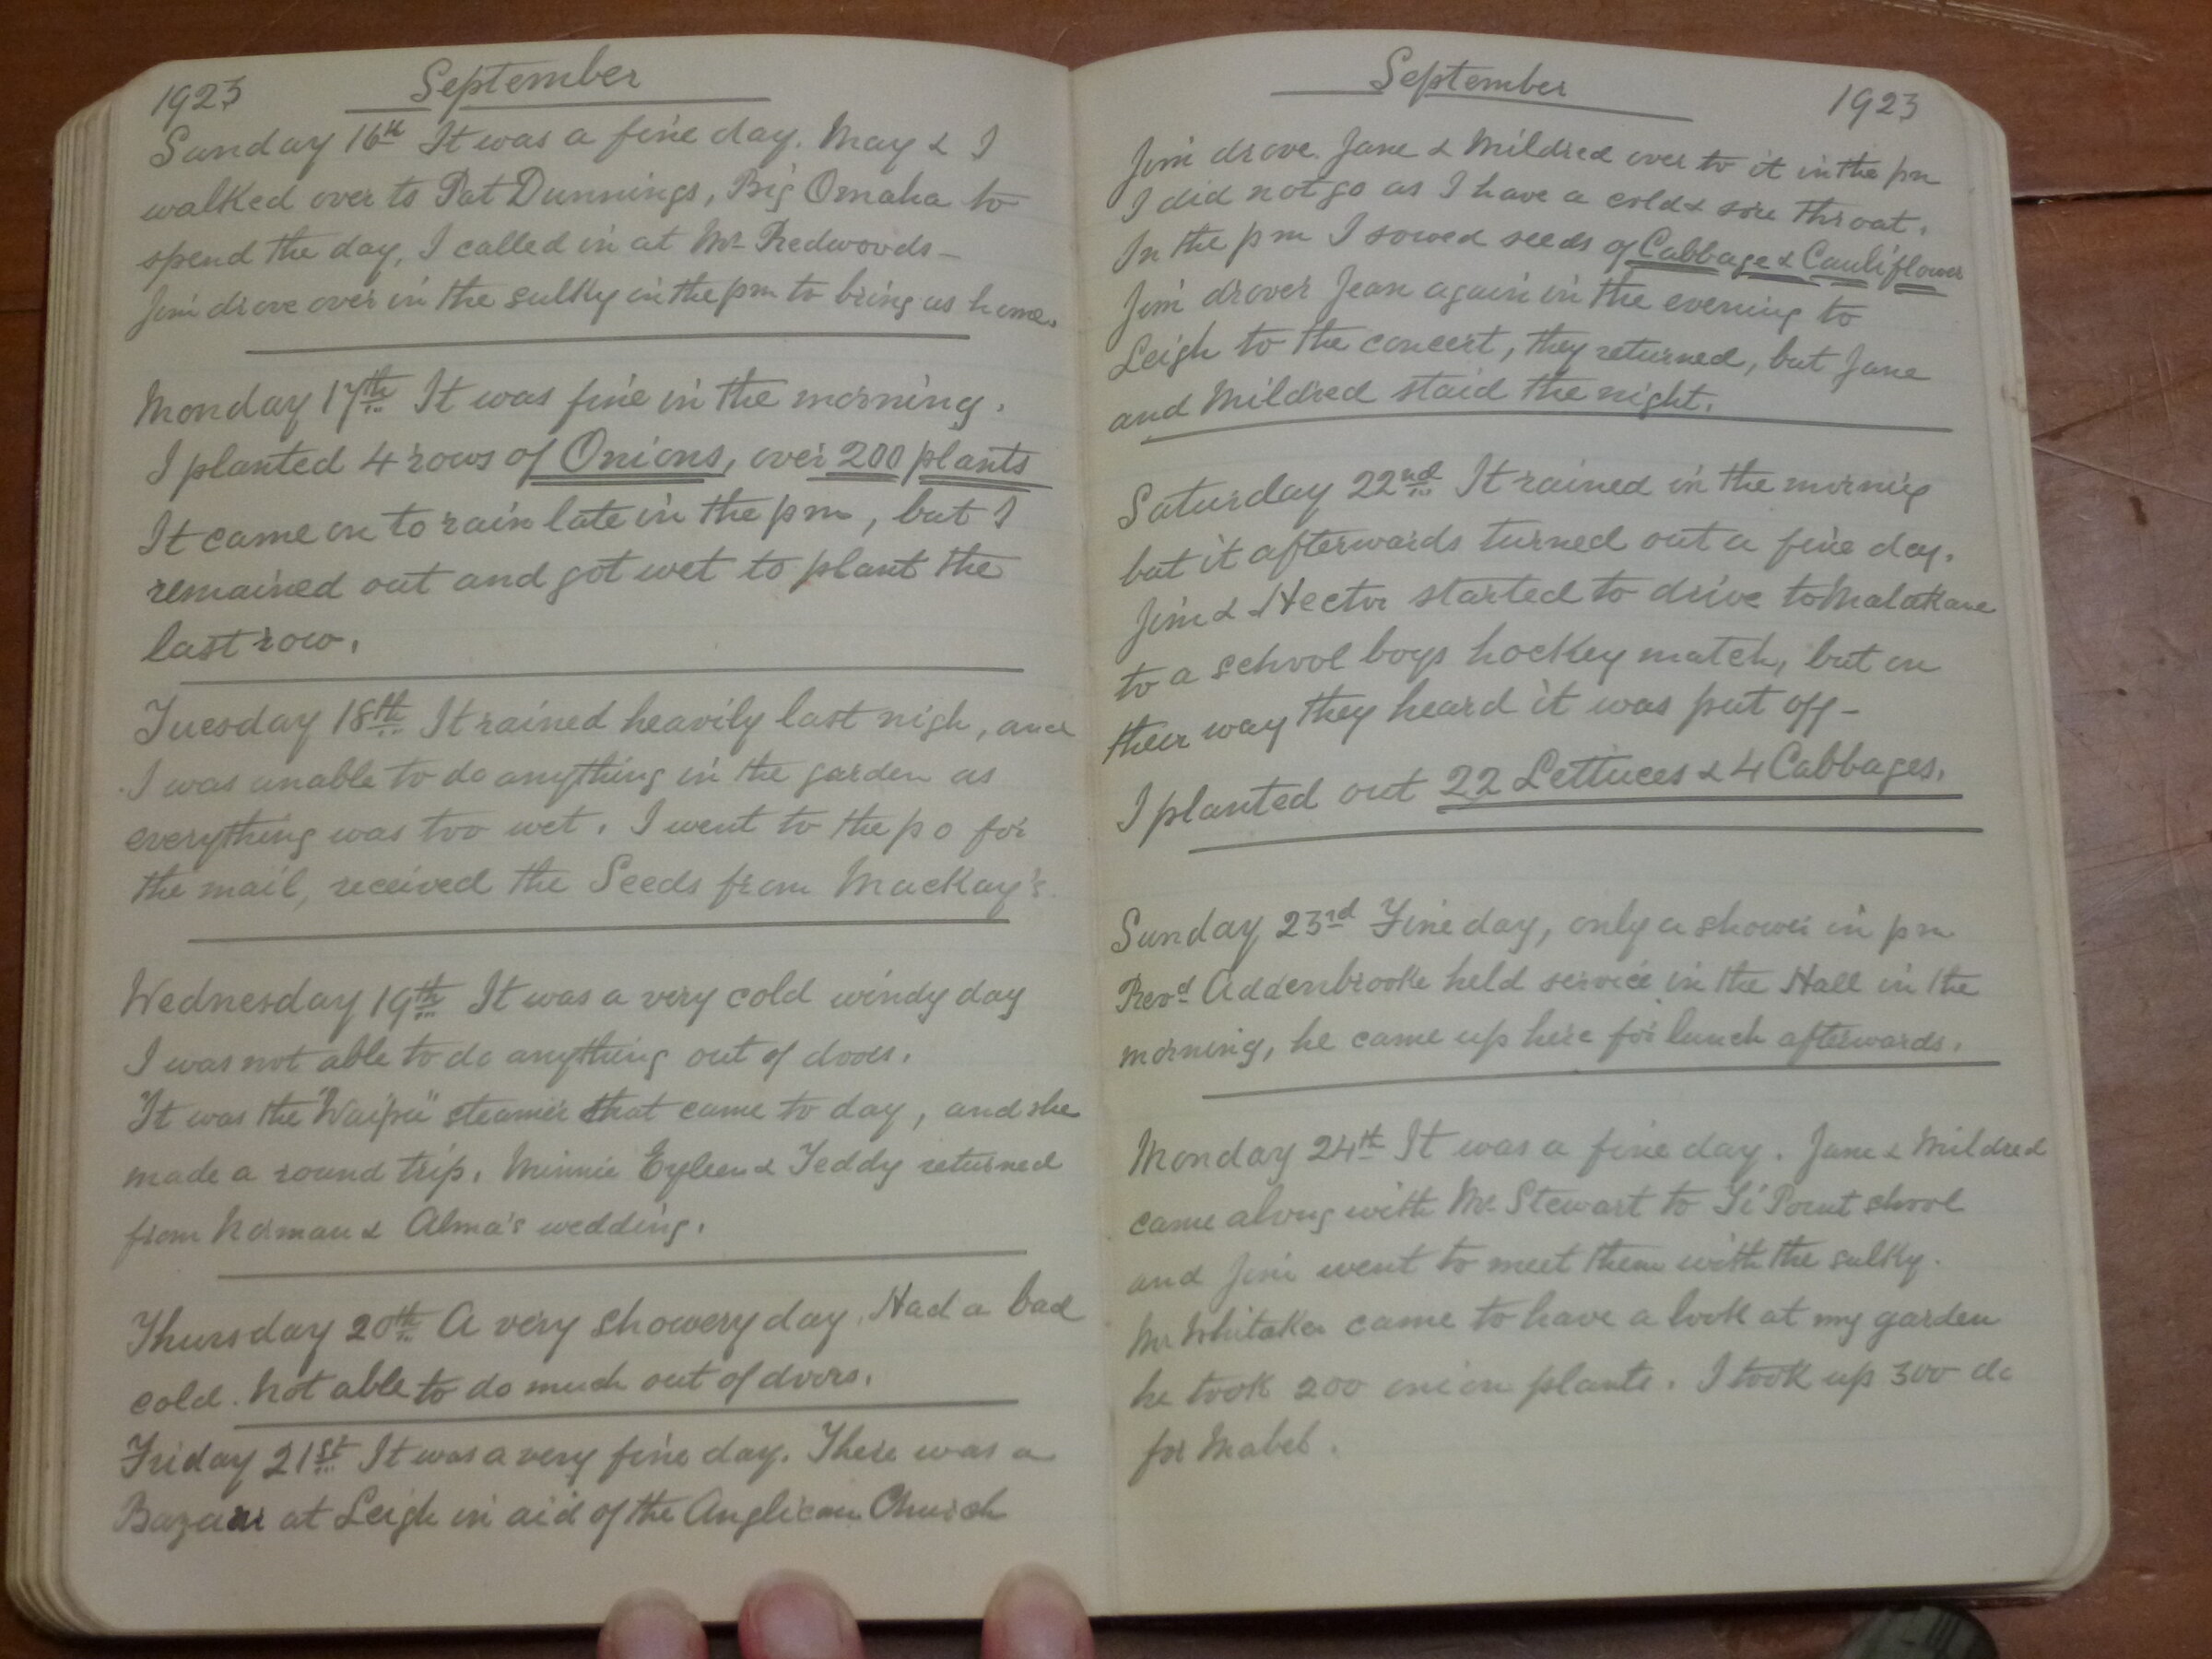 1923 September
Sunday 16th It was a fine day. May & I
walked over to Pat Dunnings, Big Omaha to
spend the day, I called in at Mr Redwoods -
Jim drove over in the sulky in the pm to bring us home.
Monday 17th It was fine in the morning.
I planted 4 rows of Onions, over 200 plants
It came on to rain late in the pm, but I
remained out and got wet to plant the
last row.
Tuesday 18th It rained heavily last nigh, and
I was unable to do anything in the garden as
everything was too wet. I went to the p o for
the mail, received the Seeds from Mackay's
Wednesday 19th It was a very cold windy day
I was not able to do anything out of doors.
It was the "Waipu" steamer that came to day, and she
made a round trip. Minnie Eyleen & Teddy returned
from Norman & Alma's wedding.
Thursday 20th A very showery day. Had a bad
cold. Not able to do much out of doors.
Friday 21st It was a very fine day. There was a
Bazaar at Leigh in aid of the Anglican Church
September 1923
Jim drove Jane & Mildred over to it in the pm
I did not go as I have a cold & sore throat.
In the pm I sowed seeds of Cabbage & Cauliflower
Jim drover Jean again in the evening to
Leigh to the concert, they returned, but Jane
and Mildred staid the night.
Saturday 22nd It rained in the morning
but it afterwards turned out a fine day.
Jim & Hector started to drive to Matakana
to a school boys hockey match, but on
their way they heard it was put off -
I planted out 22 Lettuces & 4 Cabbages.
Sunday 23rd Fine day, only a shower in pm
Revd Addenbrooke held service in the Hall in the
morning, he came up here for lunch afterwards.
Monday 24th It was a fine day. Jane & Mildred
came along with Mr Stewart to Ti Point school
and Jim went to meet them with the sulky.
Mr Whitaker came to have a look at my garden
he took 200 onion plants. I took up 300 do
for Mabel.